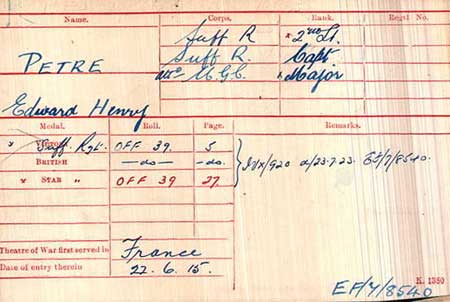 Name. Corps. Rank. Regtl No.
Suff R x 2nd Lt.
PETRE Suff R. Capt
M.G.C. x Major
Edward Henry
Medal. Roll. Page. Remarks.
x VICTORY Suff. Rgt. OFF 39. 5
BRITISH — do — — do.
x STAR " OFF 39 27.
IVX/920 d/23.7.23. EF/7/8540.
Theatre of War first served in France
Date of entry therein 22. 6. 15.
K. 1380
EF/7/8540